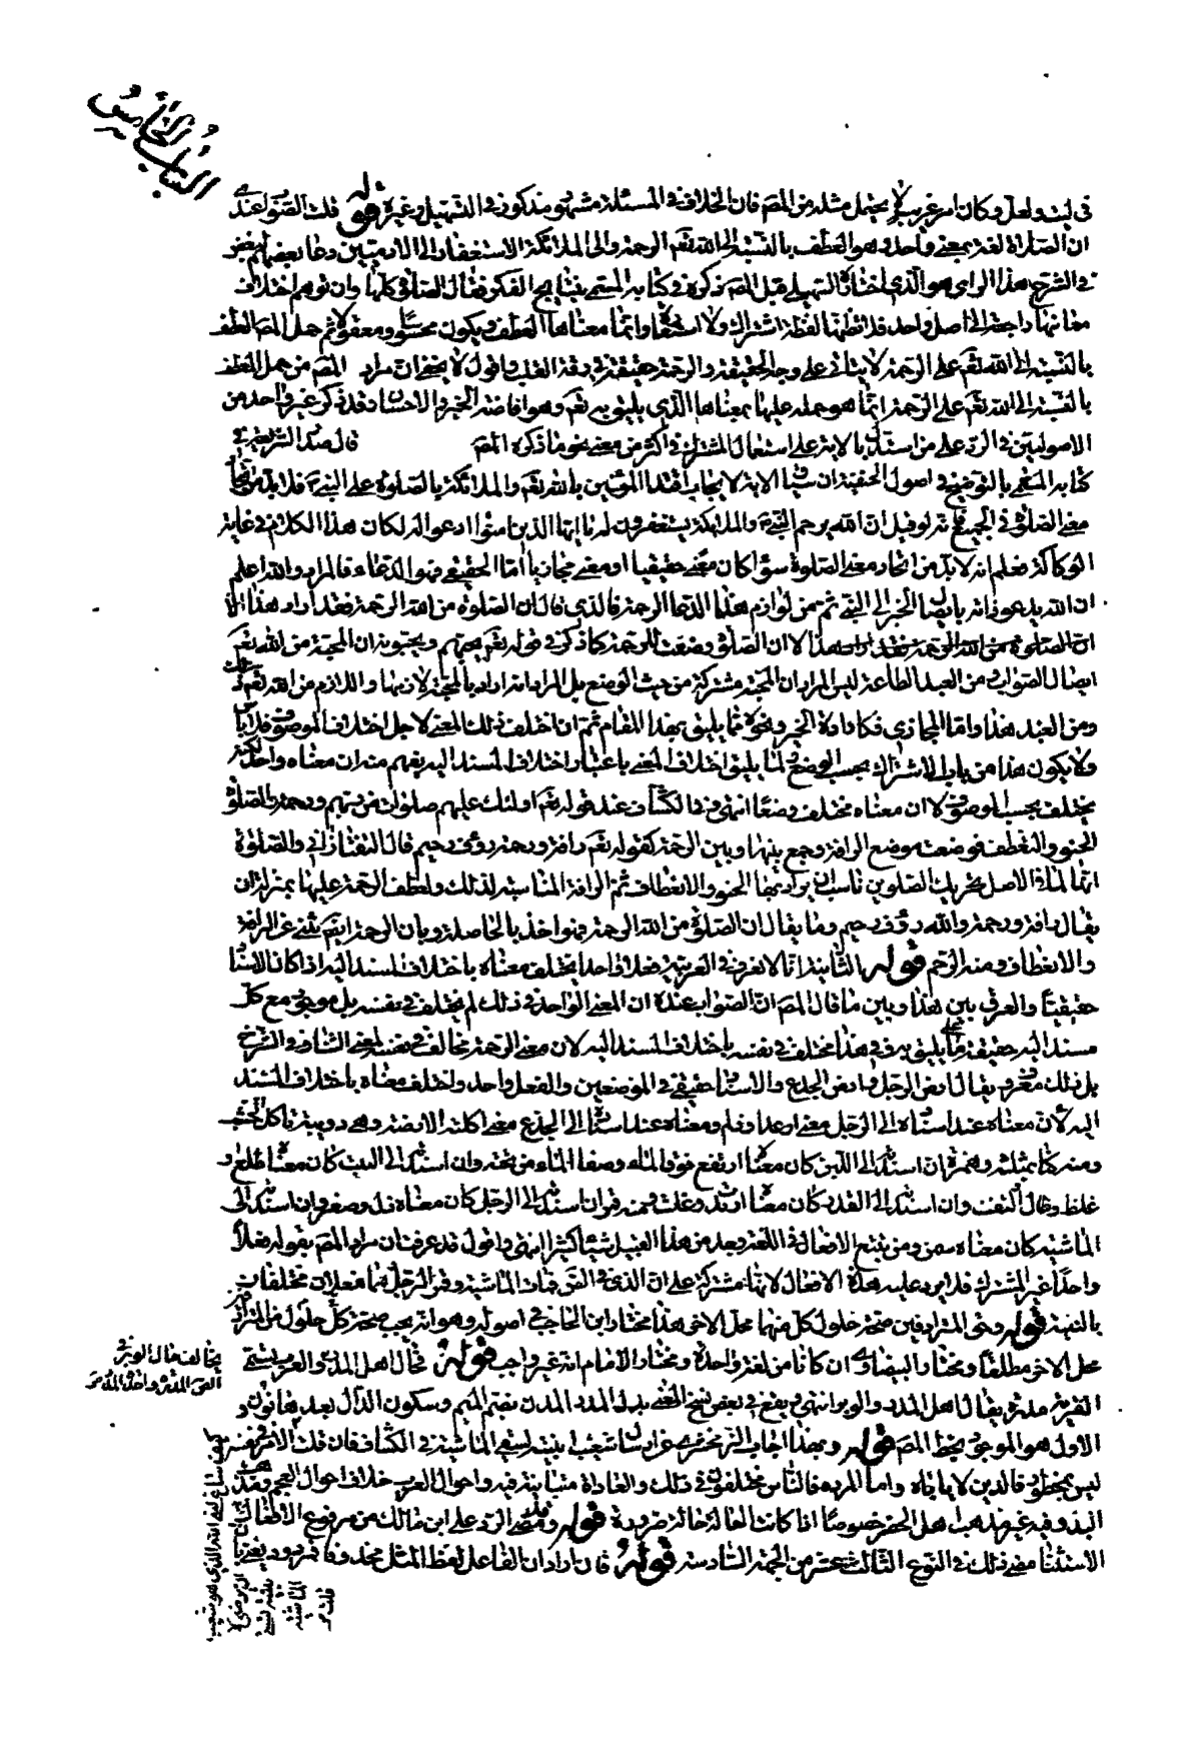 الباب الخامس
في ليت ولعل وكان امر غريب لا يحتمل مثله من المص فان الخلاف في المسئلة مشهور مذكور في التسهيل وغيره قوله قلت الصواب عندي
ان الصلوة لغة بمعنى واحد وهو العطف بالنسبة الى الله تعم الرحمة والى الملائكة الاستغفار والى الادميين دعا بعضهم لبعض
في الشرح هذا الراي هو الذي اختاره السهيلي قبل المص ذكره في كتابه المسمى بنتايج الفكر فقال الصلوة كلها وان توهم اختلاف
معانيها راجعة الى اصل واحد فلا تظنها لفظة اشتراك ولا استعارة وانما معناها العطف ويكون محسوسا ومعقولا ثم حمل المص العطف
بالنسبة الى الله تعم على الرحمة لا يتاتى على وجه الحقيقة والرحمة حقيقة في رقة القلب واقول لا يخفى ان مراد المص من حمل العطف
بالنسبة الى الله تعم على الرحمة انما هو حمله عليها بمعناها الذي يليق به تعم وهو افاضة الخير والاحسان وقد ذكر غير واحد من
الاصوليين في الرد على من استدل بالاية على استعمال المشترك في اكثر من معنى نحو ما ذكره المص قال صدر الشريعة في
كتابه المسمى بالتوضيح في اصول الحنفية ان سياق الاية لايجاب اقتداء المؤمنين بالله تعم والملائكة بالصلوة على النبي فلا بد من اتحاد
معنى الصلوة في الجميع لانه لو قيل ان الله يرحم النبي والملائكة يستغفرون له يا ايها الذين امنوا ادعوا له لكان هذا الكلام في غاية
الركاكة فعلم انه لا بد من اتحاد معنى الصلوة سواء كان معنى حقيقيا او معنى مجازيا اما الحقيقي فهو الدعاء فالمراد والله اعلم
ان الله يدعو ذاته بايصال الخير الى النبي ثم من لوازم هذا الدعا الرحمة فالذي قال ان الصلوة من الله الرحمة فقد اراد هذا لا
ان الصلوة وضعت للرحمة كما ذكر في قوله تعم يحبهم ويحبونه ان المحبة من الله تعم
ايصال الثواب ومن العبد الطاعة ليس المراد ان المحبة مشتركة من حيث الوضع بل المراد انه اراد بالمحبة لازمها واللازم من الله تعم ذلك
ومن العبد هذا واما المجازي فكارادة الخير ونحوه مما يليق بهذا المقام ثم ان اختلف ذلك المعنى لاجل اختلاف الموصوف فلا باس
ولا يكون هذا من باب الاشتراك بحسب الوضع ولما يليق اختلاف المعنى باعتبار اختلاف المسند اليه يفهم منه ان معناه واحد لكنه
يختلف بحسب الموصوف لا ان معناه مختلف وضعا انتهى وفي الكشاف عند قوله تعم اولئك عليهم صلوات من ربهم ورحمة والصلوة
الحنو والتعطف فوضعت موضع الرافة وجمع بينها وبين الرحمة كقوله تعم رافة ورحمة رؤف رحيم قال التفتازاني والصلوة
انما لما في الاصل تحريك الصلوين ناسب ان يراد بها الحنو والانعطاف ثم الرافة المناسبة لذلك ولعطف الرحمة عليها بمنزلة ان
يقال رافة ورحمة والله رؤف رحيم وما يقال ان الصلوة من الله الرحمة فهو اخذ بالحاصل وبان الرحمة ايضم تنبئ عن الرافة
والانعطاف ومنه الرحم قوله الثانية انا لا نعرف في العربية فعلا واحدا يختلف معناه باختلاف المسند اليه اذا كان الاسناد
حقيقيا والفرق بين هذا وبين ما قال المص ان الصواب عنده ان المعنى الواحد في ذلك لم يختلف في نفسه بل موجود مع كل
مسند اليه حقيقة بما يليق به وفي هذا مختلف في نفسه باختلاف المسند اليه لان معنى الرحمة مخالف في نفسه لمعنى الثناء وفي الشرح
بل ذلك معروف يقال ارض الرجل وارض الجذع والاسناد حقيقي في الموضعين والفعل واحد واختلف معناه باختلاف المسند
اليه لان معناه عند اسناده الى الرجل معنى ارعد او زكم ومعناه عند اسناده الى الجذع معنى اكلته الارضة وهي دويبة تاكل الخشب
ومنه كثا بمثلثة وهمزة ان اسند الى اللبن كان معناه ارتفع فوق الماء وصفا الماء من تحته وان اسند الى النبت كان معناه طلع و
غلظ وطال والتف وان اسند الى القدر كان معناه ازبد وغلت ومنه قمؤ ان اسند الى الرجل كان معناه ذل وصغر وان اسند الى
الماشية كان معناه سمن ومن تتبع الافعال في اللغة وجد من هذا القبيل شيئا كثيرا انتهى واقول قد عرفت ان مراد المص بقوله فعلا
واحدا غير المشترك فلا يرد عليه هذه الافعال لانها مشتركة على ان الذي في القم قمات الماشية وقمؤ الرجل فهما فعلان مختلفان
بالبنية قوله وحق المترادفين صحة حلول كل منهما محل الاخر هذا مختار ابن الحاجب في اصوله وهو انه يجب صحة كل حلول من المترادفين
محل الاخر مطلقا ومختار البيضاوي ان كانا من لغة واحدة ومختار الامام انه غير واجب قوله فحال اهل المدر والعرب يسمى
القرية مدرة يقال اهل المدر والوبر انتهى ويقع في بعض نسخ المغني بدل المدر المدن بضم الميم وسكون الدال بعدها نون و
الاول هو الموجود بخط المص قوله وبهذا اجاب الزمخشري عن ارسال شعيب ابنتيه لسقي الماشية في الكشاف فان قلت الامر في نفسه
ليس بمحظور فالدين لا ياباه واما المروة فالناس مختلفون في ذلك والعادة متباينة فيه واحوال العرب خلاف احوال العجم ومذهب
البدو فيه غير مذهب اهل الحضر خصوصا اذا كانت الحالة حالة ضرورة قوله ومضى الرد على ابن مالك من مرفوع الافعال
الاستثنا مضى ذلك في النوع الثالث عشر من الجهة السادسة قوله فان اراد ان الفاعل لفظ المثل محذوفا فمردود يعني بان
يخالف حال الوبر في
القم المدن واحدة المدر صح
كيف ساغ لنبي الله الذي هو شعيب
ان يرضى لا
بنتيه بسقي
الماشية
قلت صح